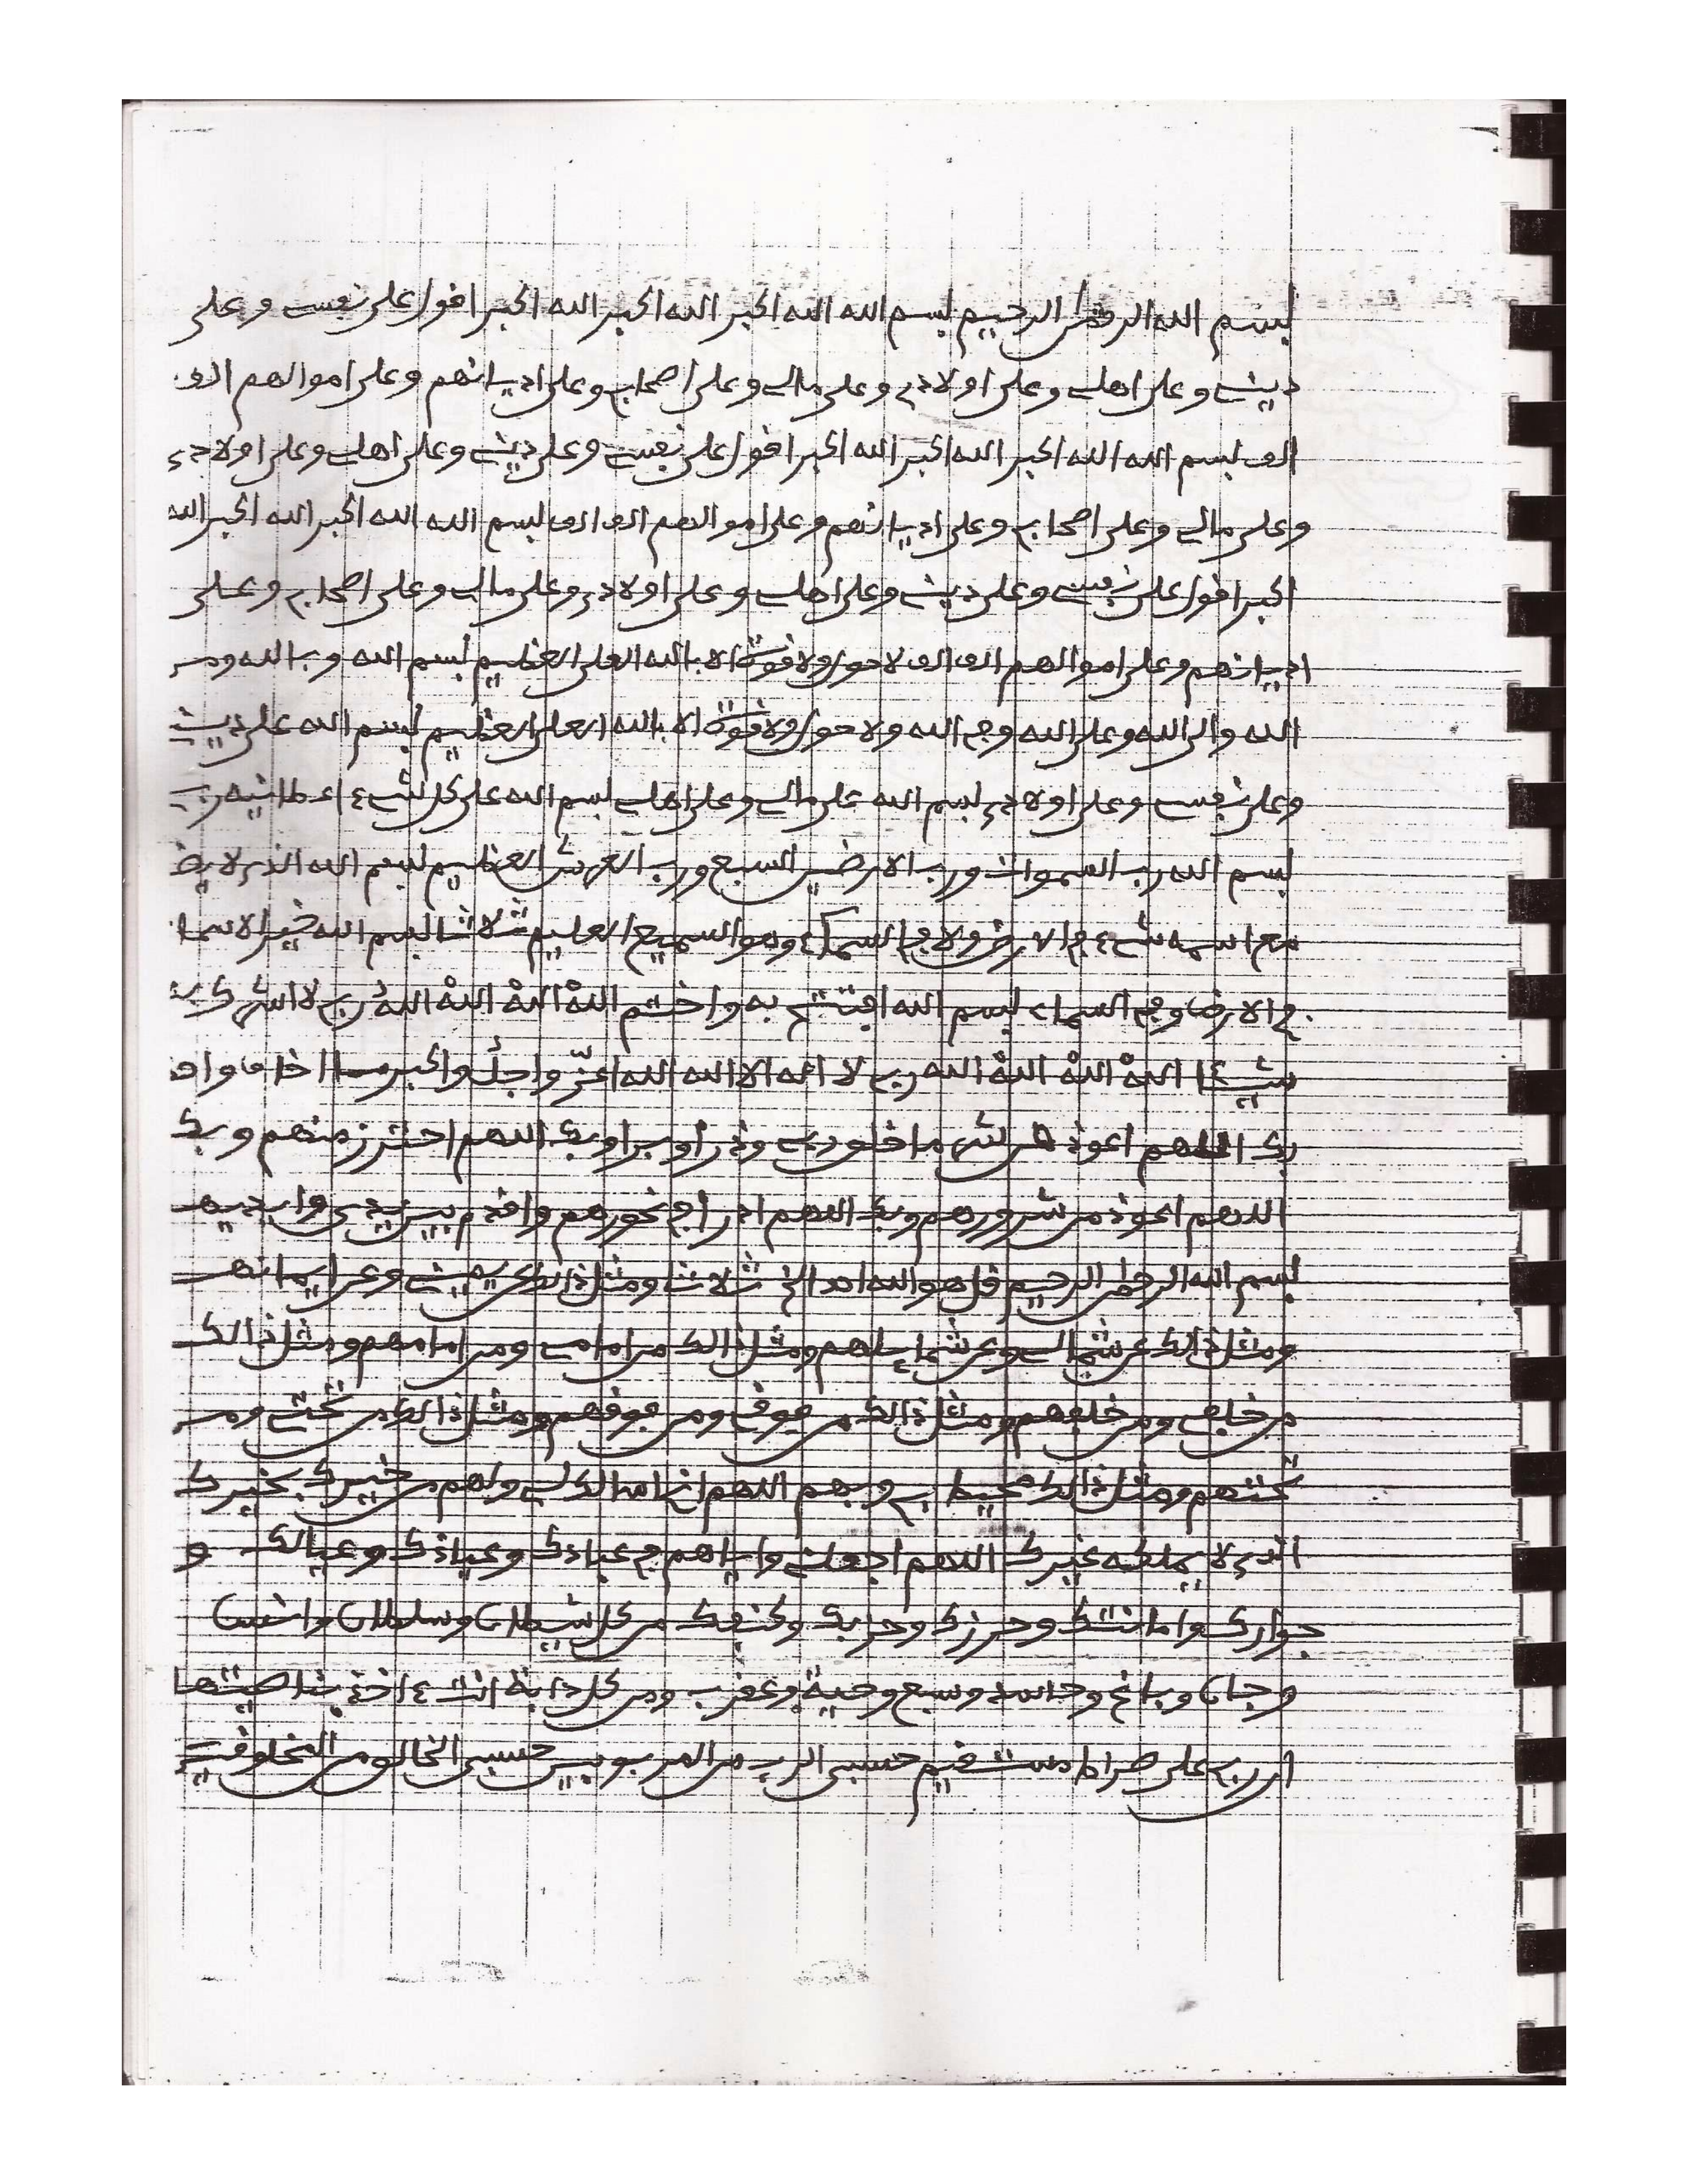 بسم الله الرحمن الرحيم بسم الله الله اكبر الله اكبر الله اكبر اقول على نفسي وعلى
ديني وعلى اهلي وعلى اولادي وعلى مالي وعلى اصحابي وعلى اديانهم وعلى اموالهم الف
الف بسم الله الله اكبر الله اكبر الله اكبر اقول على نفسي وعلى ديني وعلى اهلي وعلى اولادي
وعلى مالي وعلى اصحابي وعلى اديانهم وعلى اموالهم الف الف بسم الله الله اكبر الله اكبر الله
اكبر اقول على نفسي وعلى ديني وعلى اهلي وعلى اولادي وعلى مالي وعلى اصحابي وعلى
اديانهم وعلى اموالهم الف الف لا حول ولا قوة الا بالله العلي العظيم بسم الله وبالله ومن
الله والى الله وعلى الله وفي الله ولا حول ولا قوة الا بالله العلي العظيم بسم الله على ديني
وعلى نفسي وعلى اولادي بسم الله على مالي وعلى اهلي بسم الله على كل شيء اعطانيه ربي
بسم الله رب السموات ورب الارضين السبع ورب العرش العظيم بسم الله الذي لا يض
مع اسمه شيء في الارض ولا في السماء وهو السميع العليم ثلاثا بسم الله خير الاسما
في الارض وفي السماء بسم الله افتتح به واختتم الله الله الله الله ربي لا اشرك به
شيئا الله الله الله الله ربي لا اله الا الله الله اعز واجل واكبر مما اخاف واحذ
بك اللهم اعوذ من شر ما خلق ربي وذرا وبرا وبك اللهم احترز منهم وبك
اللهم اعوذ من شرورهم وبك اللهم ادرا في نحورهم واقدم بين يدي وايديهم
بسم الله الرحمن الرحيم قل هو الله احد الخ ثلاث ومثل ذالك عن يميني وعن ايمانهم
ومثل ذالك عن شمالي وعن شمايلهم ومثل ذالك من امامي ومن امامهم ومثل ذالك
من خلفي ومن خلفهم ومثل ذالك من فوقي ومن فوقهم ومثل ذالك من تحتي ومن
تحتهم ومثل ذالك محيط بي وبهم اللهم اني اسالك لي ولهم من خيرك بخيرك
الذي لا يملكه غيرك اللهم اجعلني واياهم في عبادك وعياذك وعيالك و
جوارك وامانتك وحرزك وحزبك وكنفك من كل شيطان وسلطان وانس
وجان وباغ وحاسد وسبع وحية وعقرب ومن كل دابة انت ءاخذ بناصيتها
ان ربي على صراط مستقيم حسبي الرب من المربوبين حسبي الخالق من المخلوقين